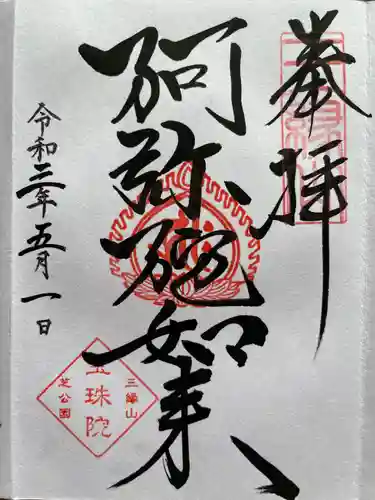 奉拝
阿弥陀如来
令和三年五月一日
三縁山
宝珠院
芝公園